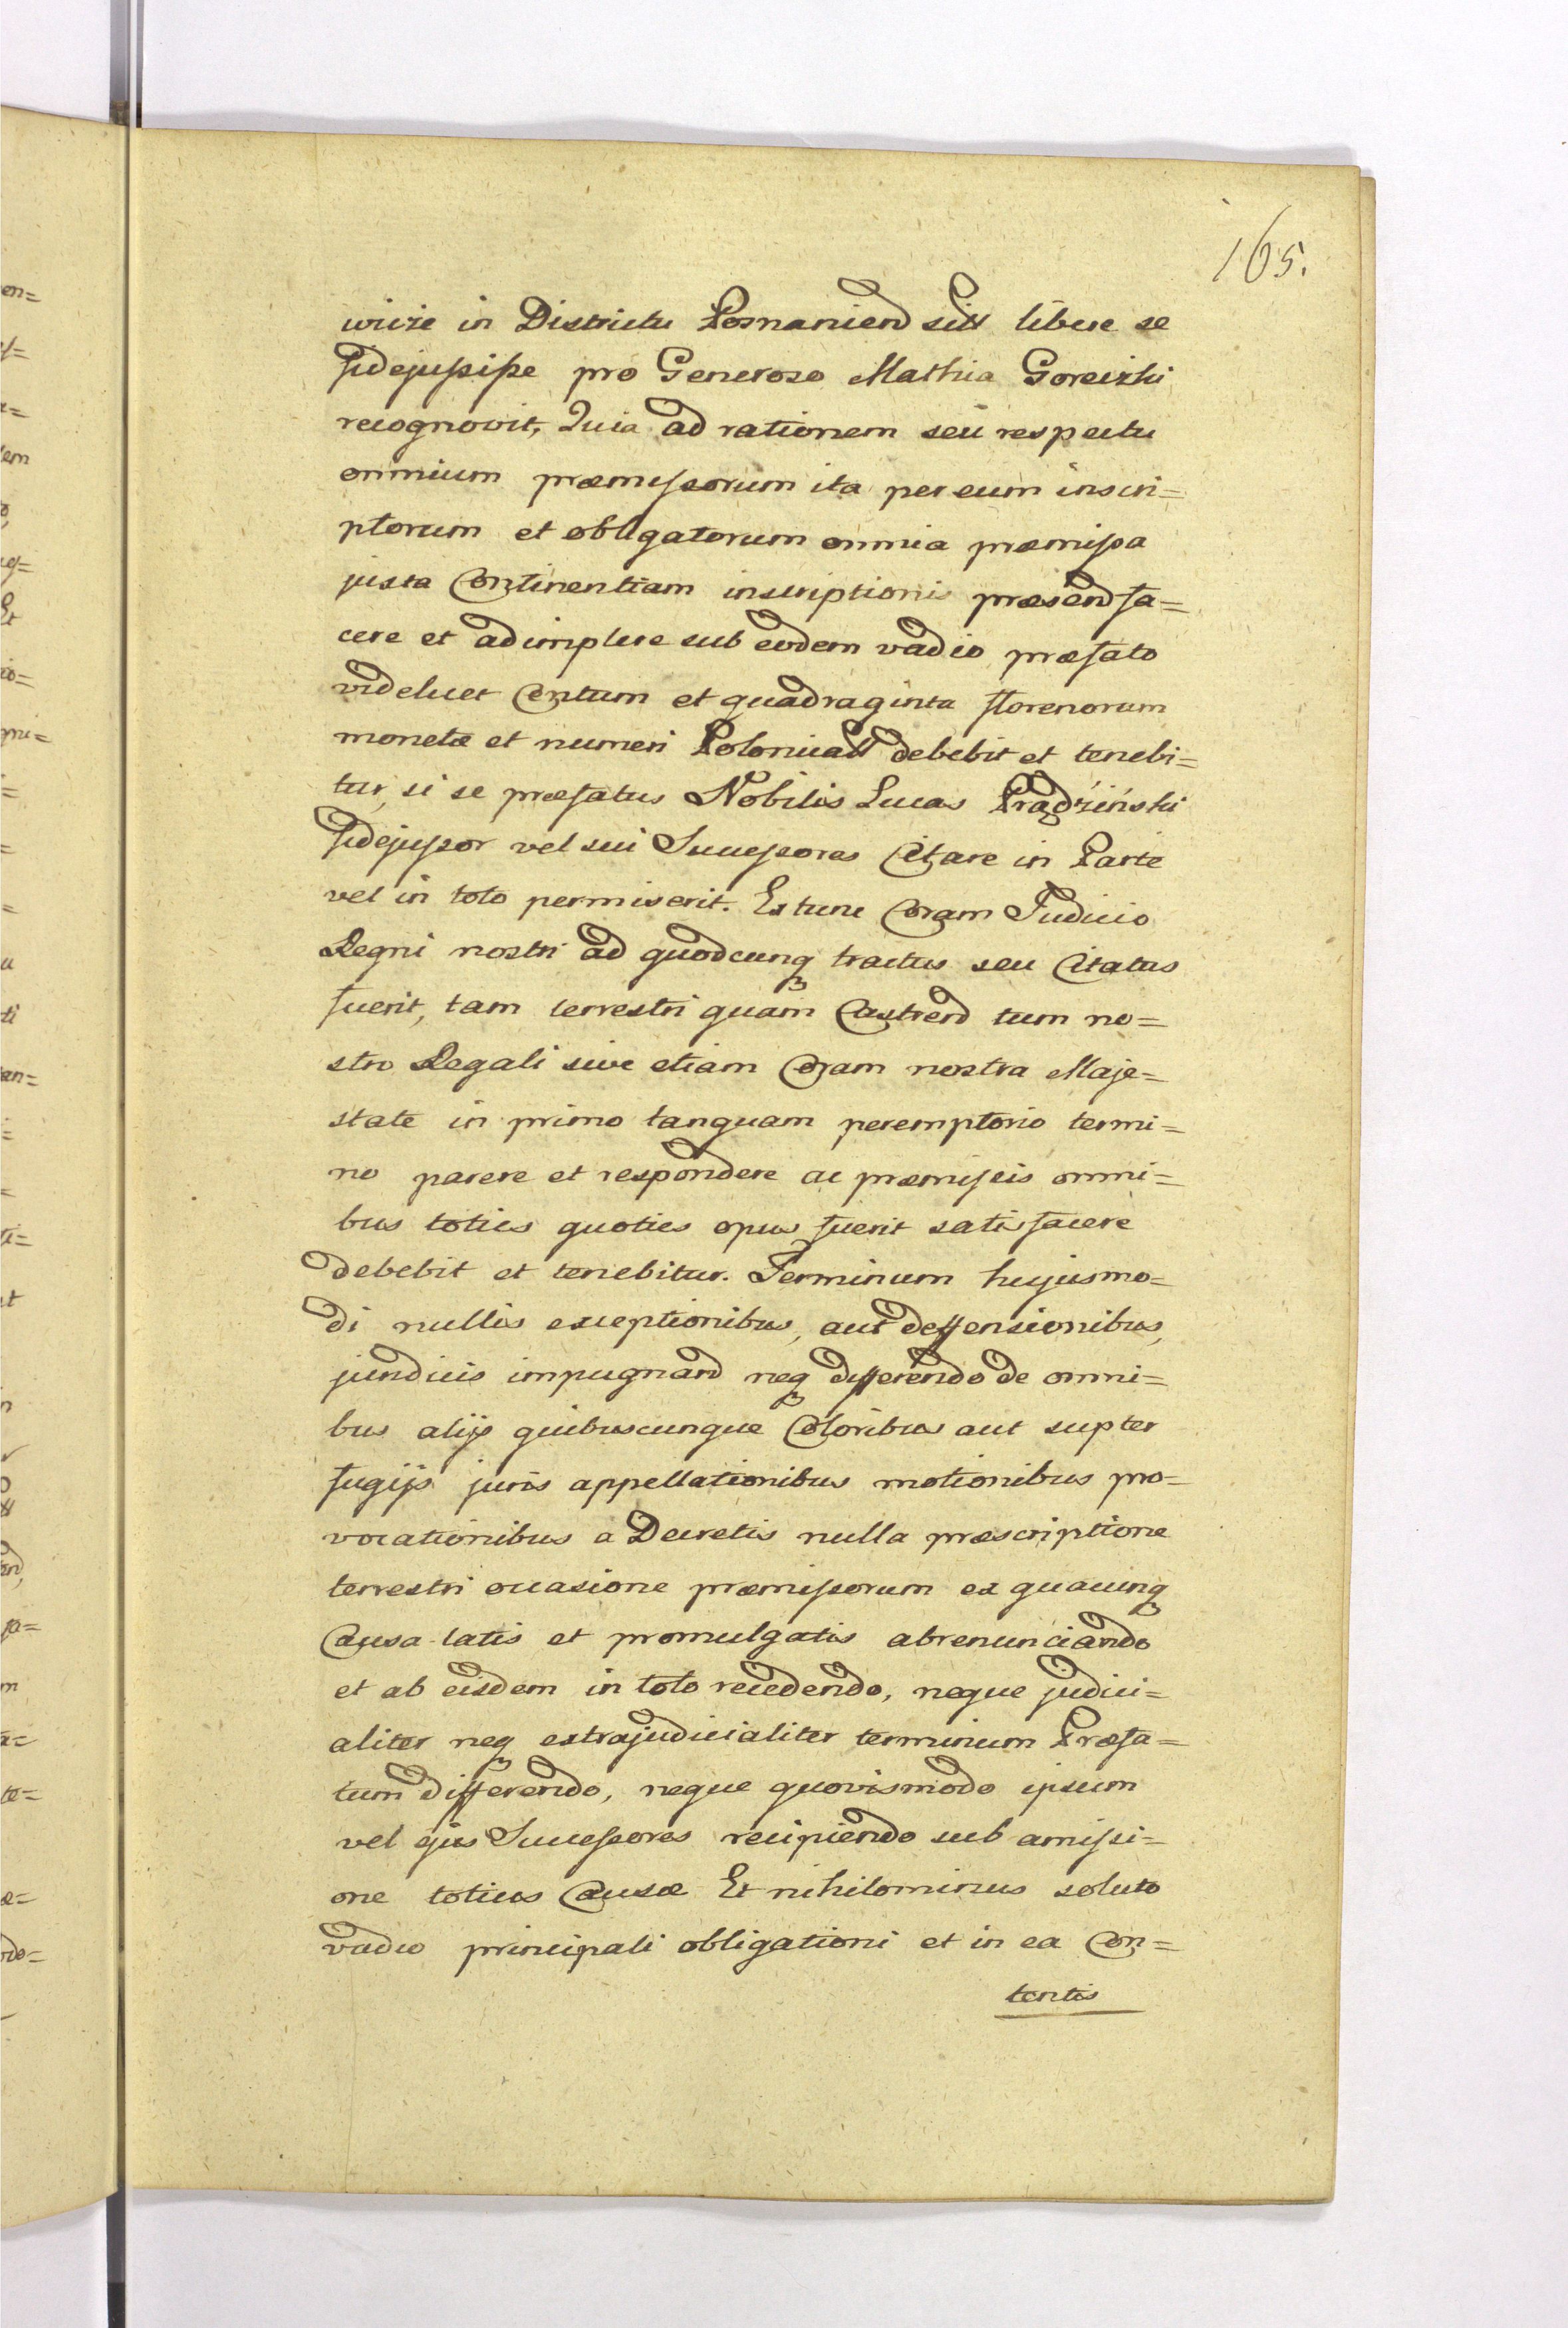 165.
wicze in Districtu Posnaniend sitt libere se
fidejussisse pro Generoso Mathia Goreczki
recognovit, Quia ad rationem seu respectu
omnium præmissorum ita per eum inscri=
ptorum et obligatorum omnia præmissa
juxta Continentiam inscriptionis præsend fa=
cere et adimplere sub eodem vadio præfato
videlicet Centum et quadraginta florenorum
monetæ et numeri Polonicatt debebit et tenebi=
tur, si se præfatus Nobilis Lucas Prądziński
fidejussor vel sui Successores Citare in Parte
vel in toto permiserit. Ex tunc Coram Judicio
Regni nostri ad quodcunq tractus seu Citatus
fuerit, tam terrestri quam Castrend tum no=
stro Regali sive etiam Coram nostra Maje=
state in primo tanquam peremptorio termi=
no parere et respondere ac præmissis omni=
bus toties quoties opus fuerit satisfacere
debebit et tenebitur. Terminum hujusmo=
di nullis exceptionibus, aut deffensionibus,
juridicis impugnand neq differendo de omni=
bus alijs quibuscunque Coloribus aut supter
fugijs juris appellationibus motionibus pro=
vocationibus a Decretis nulla præscriptione
terrestri occasione præmissorum ex quacunq
Causa latis et promulgatis abrenunciando
et ab eisdem in toto recedendo, neque judici=
aliter neq extrajudicialiter terminum Præfa=
tum differendo, neque quovismodo ipsum
vel ejus Successores recipiendo sub amissi=
one totius Causæ Et nihilominus soluto
vadio principali obligationi et in ea Con=
tentis